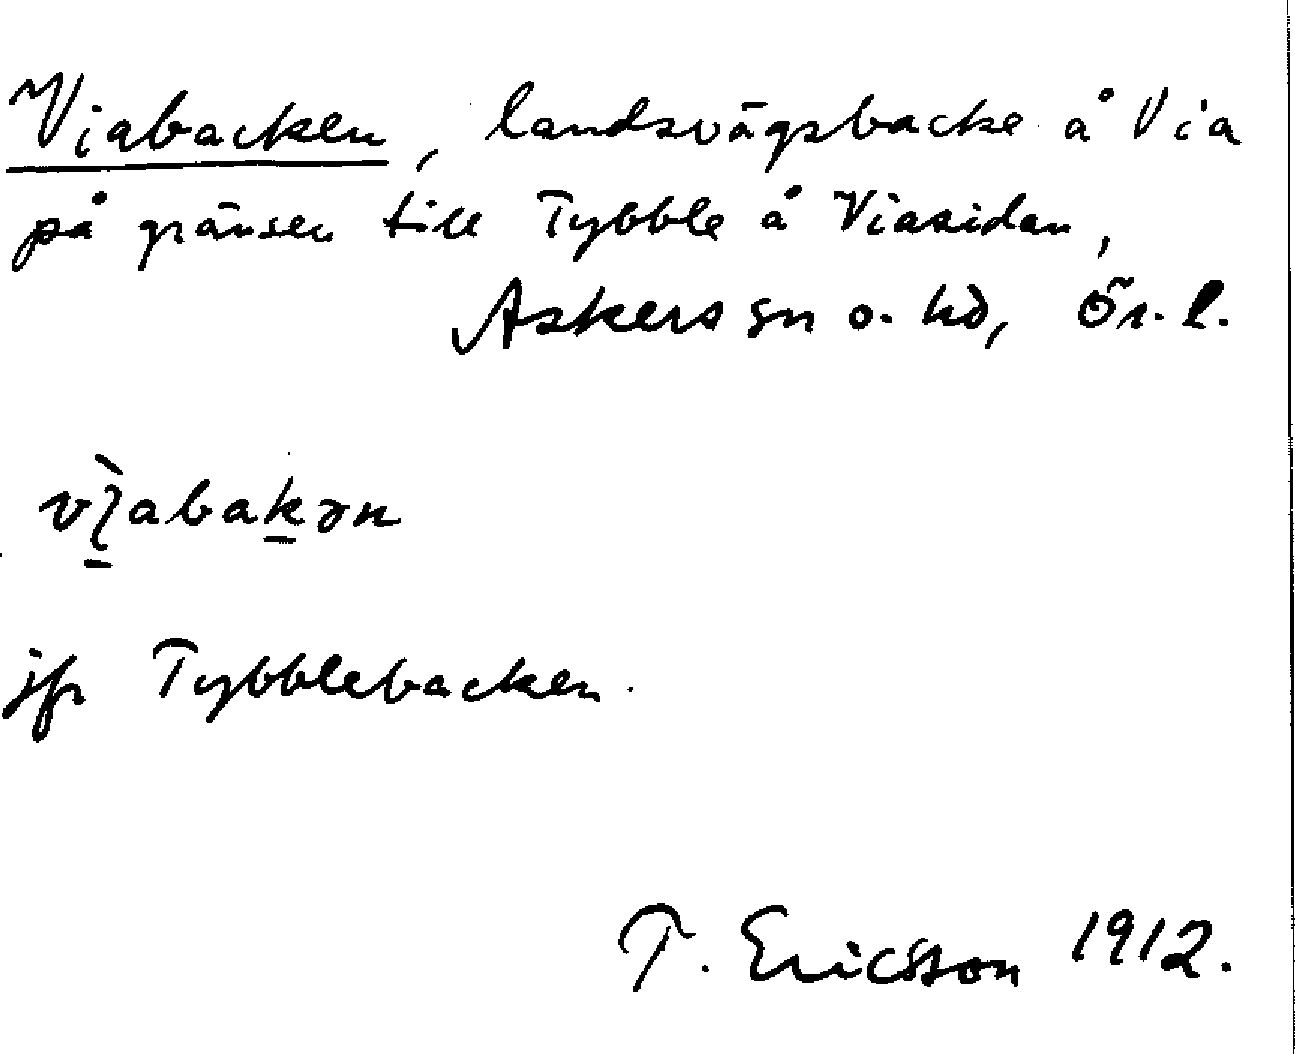 Viabacken, landsvägsbacke å Via
på gränsen till Tybble å Viasidan,
Askers sn o. hd, Ör. l.
vì̱abaḵən
jfr Tybblebacken.
T. Ericsson 1912.